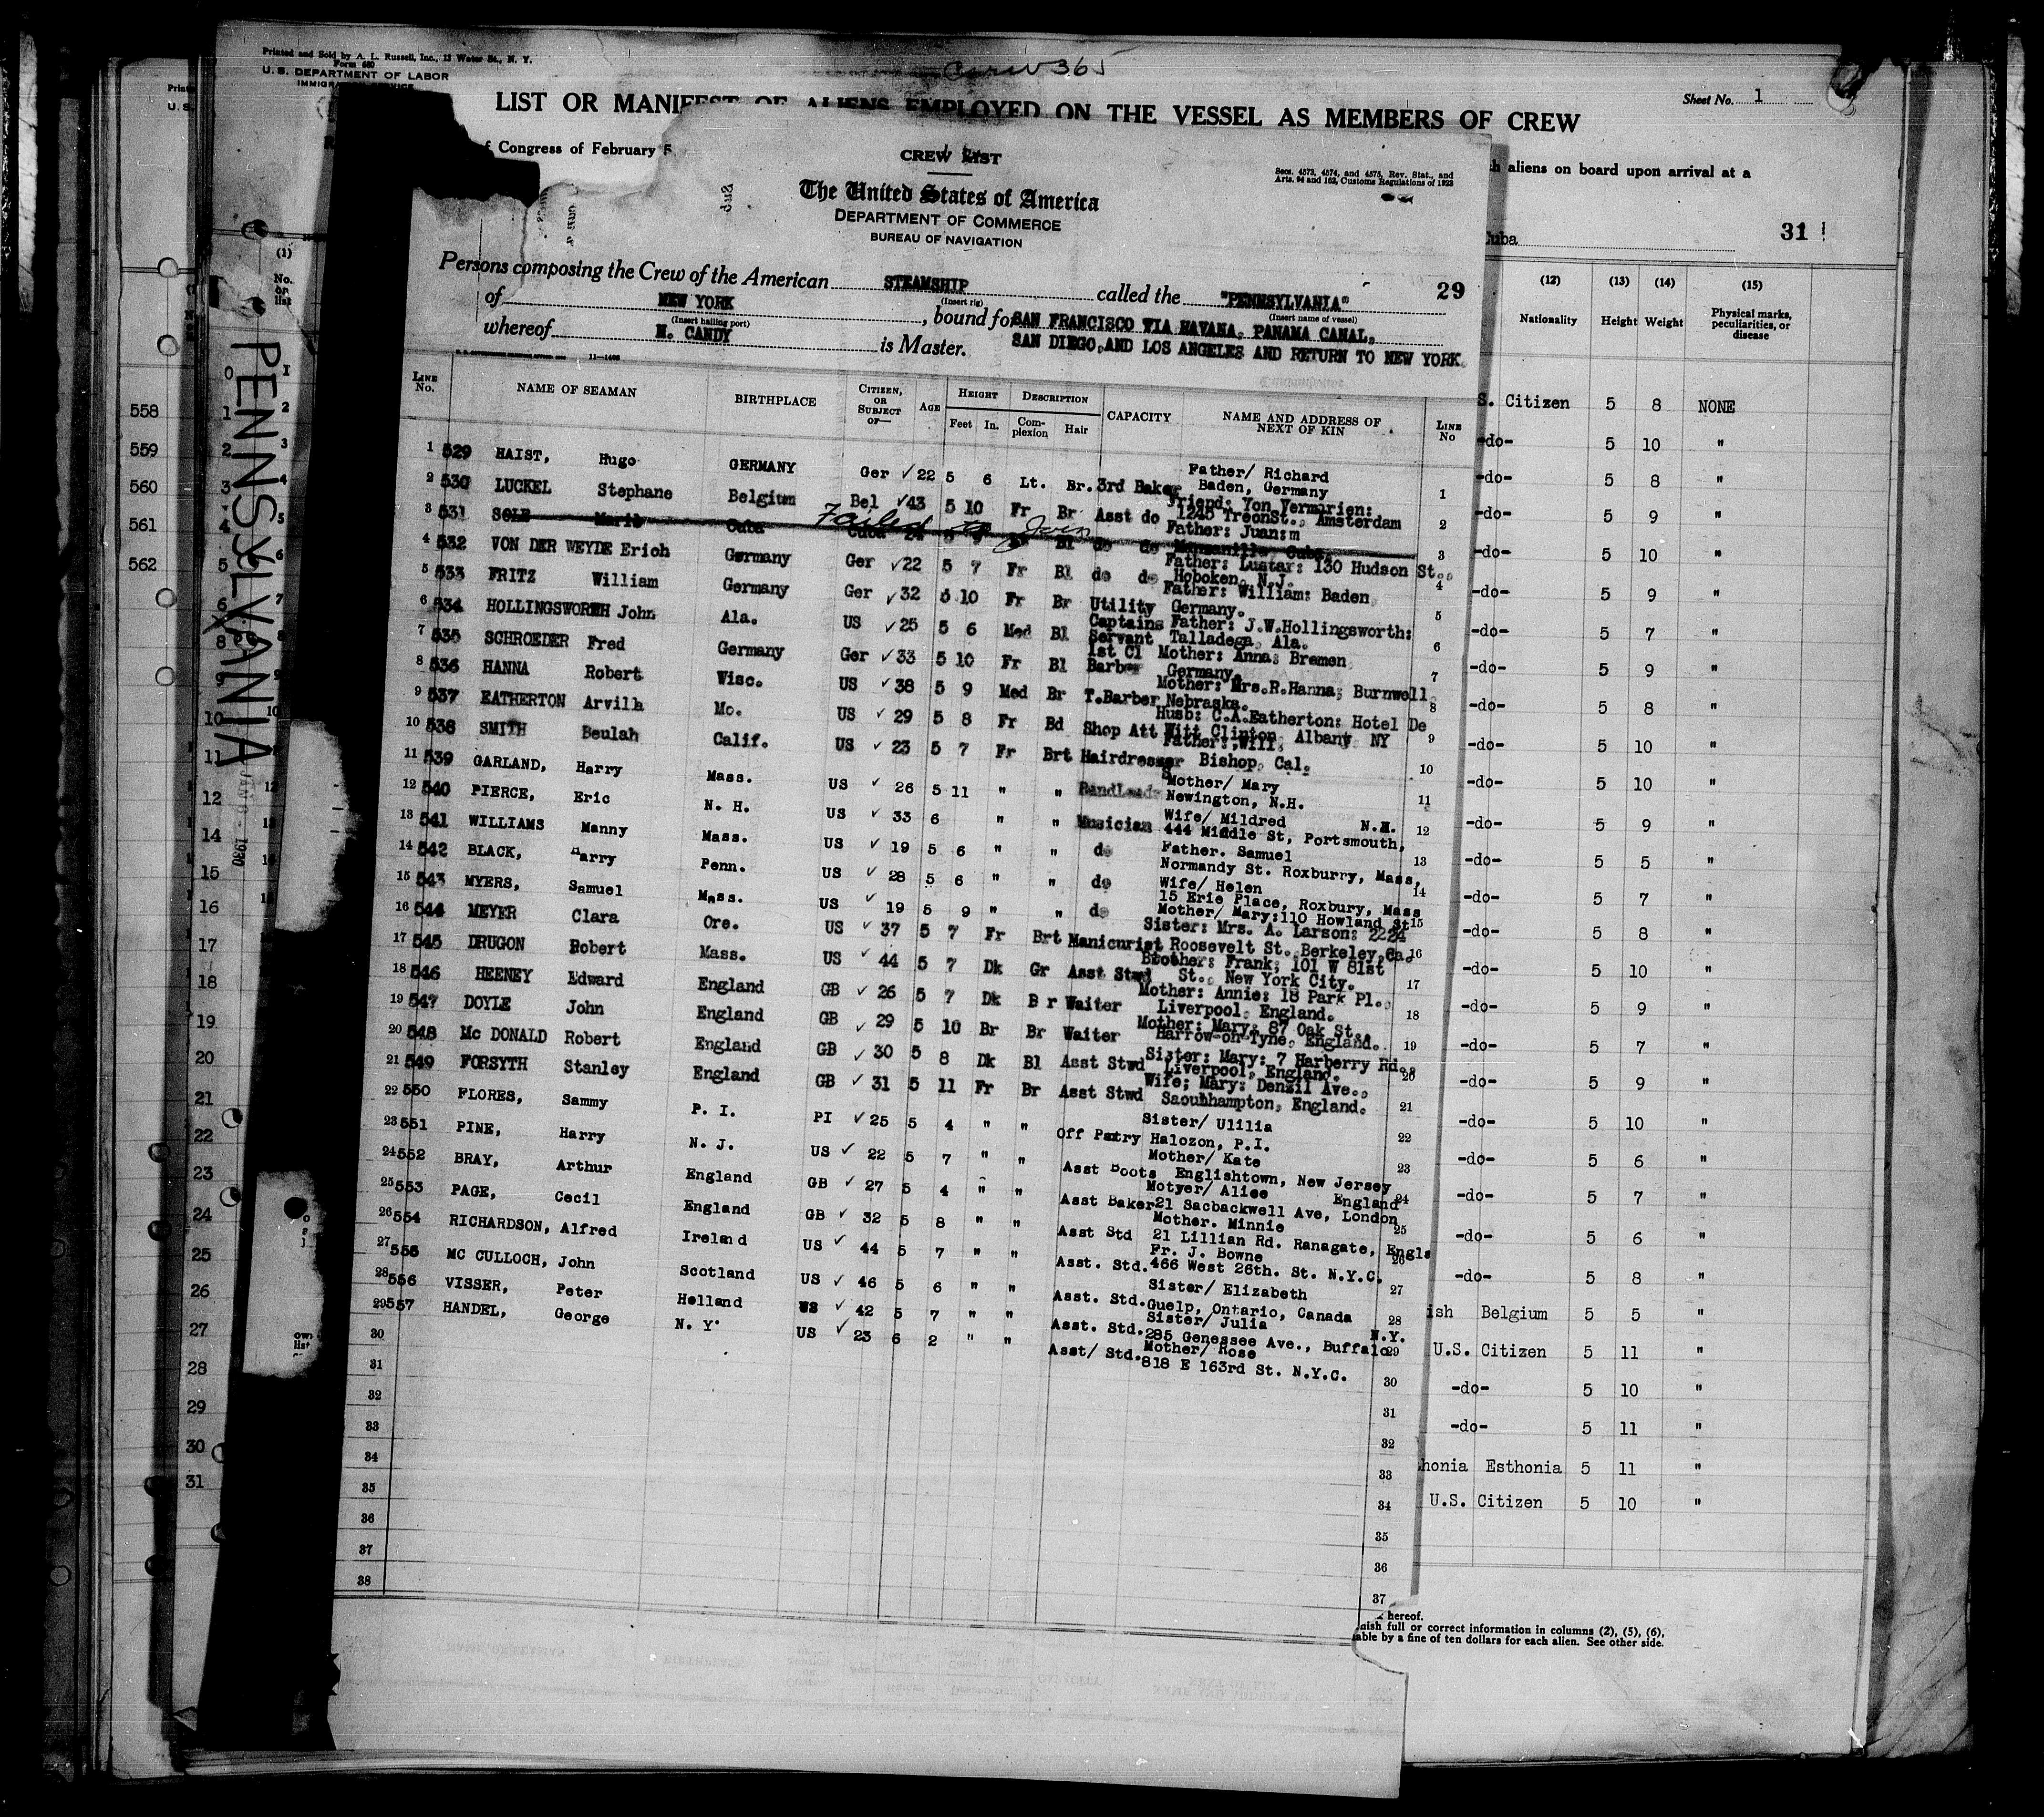 Printed and Sold by A. L. Russell, Inc., 13 Water St., N. Y.
Form 680
U. S. DEPARTMENT OF LABOR
Crew 365
Sheet No. 1
LIST OR MANIFEST OF ALIENS EMPLOYED ON THE VESSEL AS MEMBERS OF CREW
of Congress of February 5
aliens on board upon arrival at a
Cuba 31
CREW LIST
Secs. 4573, 4574, and 4575, Rev. Stat., and
Arts. 94 and 162, Customs Regulations of 1923
The United States of America
DEPARTMENT OF COMMERCE
BUREAU OF NAVIGATION
Persons composing the Crew of the American STEAMSHIP called the "PENNSYLVANIA" 29
(Insert rig) (Insert name of vessel)
of NEW YORK, bound for SAN FRANCISCO VIA HAVANA, PANAMA CANAL,
(Insert hailing port)
whereof N. CANDY is Master. SAN DIEGO, AND LOS ANGELES AND RETURN TO NEW YORK.
11-1406
LINE No. NAME OF SEAMAN BIRTHPLACE CITIZEN, OR SUBJECT OF— AGE HEIGHT Feet In. DESCRIPTION Complexion Hair CAPACITY NAME AND ADDRESS OF NEXT OF KIN LINE No
1 529 HAIST, Hugo GERMANY Ger ✓ 22 5 6 Lt. Br. 3rd Baker Father/ Richard Baden, Germany 1
2 530 LUCKEL Stephane Belgium Bel ✓ 43 5 10 Fr Br Asst do Friend: Von Vermarien: 1245 TreonSt., Amsterdam 2
3 531 SOLE Mario Cuba Cuba 24 Bl do do Father: Juan:m Manzanillo Cuba. 3
Failed to Join
4 532 VON DER WEYDE Erich Germany Ger ✓ 22 5 7 Fr Bl do do Father: Lustar: 130 Hudson St., Hoboken, N.J. 4
5 533 FRITZ William Germany Ger ✓ 32 5 10 Fr Br Utility Father: William: Baden Germany. 5
6 534 HOLLINGSWORTH John Ala. US ✓ 25 5 6 Med Bl Captains Servant Father: J.W.Hollingsworth: Talladega, Ala. 6
7 535 SCHROEDER Fred Germany Ger ✓ 33 5 10 Fr Bl 1st Cl Barber Mother: Anna: Bremen Germany. 7
8 536 HANNA Robert Wisc. US ✓ 38 5 9 Med Br T.Barber Mother: Mrs.R.Hanna; Burnwell Nebraska. 8
9 537 EATHERTON Arvilla Mo. US ✓ 29 5 8 Fr Bd Shop Att Husb: C.A.Eatherton: Hotel De Witt Clinton, Albany NY 9
10 538 SMITH Beulah Calif. US ✓ 23 5 7 Fr Brt Hairdresser Father: Will: Bishop, Cal. 10
11 539 GARLAND, Harry Mass. US ✓ 26 5 11 " " BandLeadr Mother/ Mary Newington, N.H. 11
12 540 PIERCE, Eric N. H. US ✓ 33 6 " " Musician Wife/ Mildred 444 Middle St, Portsmouth, N.H. 12
13 541 WILLIAMS Manny Mass. US ✓ 19 5 6 " " do Father. Samuel Normandy St. Roxburry, Mass, 13
14 542 BLACK, Harry Penn. US ✓ 28 5 6 " " do Wife/ Helen 15 Erie Place, Roxbury, Mass 14
15 543 MYERS, Samuel Mass. US ✓ 19 5 9 " " do Mother/ Mary:110 Howland St 15
16 544 MEYER Clara Ore. US ✓ 37 5 7 Fr Brt Manicurist Sister: Mrs. A. Larson: 2224 Roosevelt St. Berkeley,Ca. 16
17 545 DRUGON Robert Mass. US ✓ 44 5 7 Dk Gr Asst Stwd Brother: Frank; 101 W 81st St., New York City. 17
18 546 HEENEY Edward England GB ✓ 26 5 7 Dk B r Waiter Mother: Annie: 18 Park Pl., Liverpool, England. 18
19 547 DOYLE John England GB ✓ 29 5 10 Br Br Waiter Mother: Mary: 87 Oak St., Harrow-on-Tyne, England. 19
20 548 Mc DONALD Robert England GB ✓ 30 5 8 Dk Bl Asst Stwd Sister: Mary: 7 Harberry Rd., Liverpool, England. 20
21 549 FORSYTH Stanley England GB ✓ 31 5 11 Fr Br Asst Stwd Wife; Mary: Denzil Ave., Saouhhampton, England. 21
22 550 FLORES, Sammy P. I. PI ✓ 25 5 4 " " Off Pantry Sister/ Ulilia Halozon, P.I. 22
23 551 PINE, Harry N. J. US ✓ 22 5 7 " " Asst Boots Mother/ Kate Englishtown, New Jersey 23
24 552 BRAY, Arthur England GB ✓ 27 5 4 " " Asst Baker Motyer/ Alice 21 Sacbackwell Ave, London England 24
25 553 PAGE, Cecil England GB ✓ 32 5 8 " " Asst Std Mother. Minnie 21 Lillian Rd. Ranagate, Engla 25
26 554 RICHARDSON, Alfred Ireland US ✓ 44 5 7 " " Asst. Std. Fr. J. Bowne 466 West 26th. St. N.Y.C. 26
27 555 MC CULLOCH, John Scotland US ✓ 46 5 6 " " Asst. Std. Sister/ Elizabeth Guelp, Ontario, Canada 27
28 556 VISSER, Peter Holland US ✓ 42 5 7 " " Asst. Std. Sister/ Julia 285 Genessee Ave., Buffalo N.Y. 28
29 557 HANDEL, George N. Y. US ✓ 23 6 2 " " Asst/ Std. Mother/ Rose 818 E 163rd St. N.Y.C. 29
30 30
31 31
32 32
33 33
34 34
35 35
36 36
37 37
38
(12) (13) (14) (15)
Nationality Height Weight Physical marks, peculiarities, or disease
S. Citizen 5 8 NONE
-do- 5 10 "
-do- 5 8 "
-do- 5 9 "
-do- 5 10 "
-do- 5 9 "
-do- 5 7 "
-do- 5 9 "
-do- 5 8 "
-do- 5 10 "
-do- 5 10 "
-do- 5 9 "
-do- 5 5 "
-do- 5 7 "
-do- 5 8 "
-do- 5 10 "
-do- 5 9 "
-do- 5 7 "
-do- 5 9 "
-do- 5 10 "
-do- 5 6 "
-do- 5 7 "
-do- 5 6 "
-do- 5 8 "
ish Belgium 5 5 "
U.S. Citizen 5 11 "
-do- 5 10 "
-do- 5 11 "
honia Esthonia 5 11 "
U.S. Citizen 5 10 "
hereof.
nish full or correct information in columns (2), (5), (6),
able by a fine of ten dollars for each alien. See other side.
PENNSYLVANIA
JAN 6 - 1930
(1)
No. on list
558
559
560
561
562
0
1
2
3
4
5
6
8
9
10
11
12
13
14
15
16
17
18
19
20
21
22
23
24
25
26
27
28
29
30
31